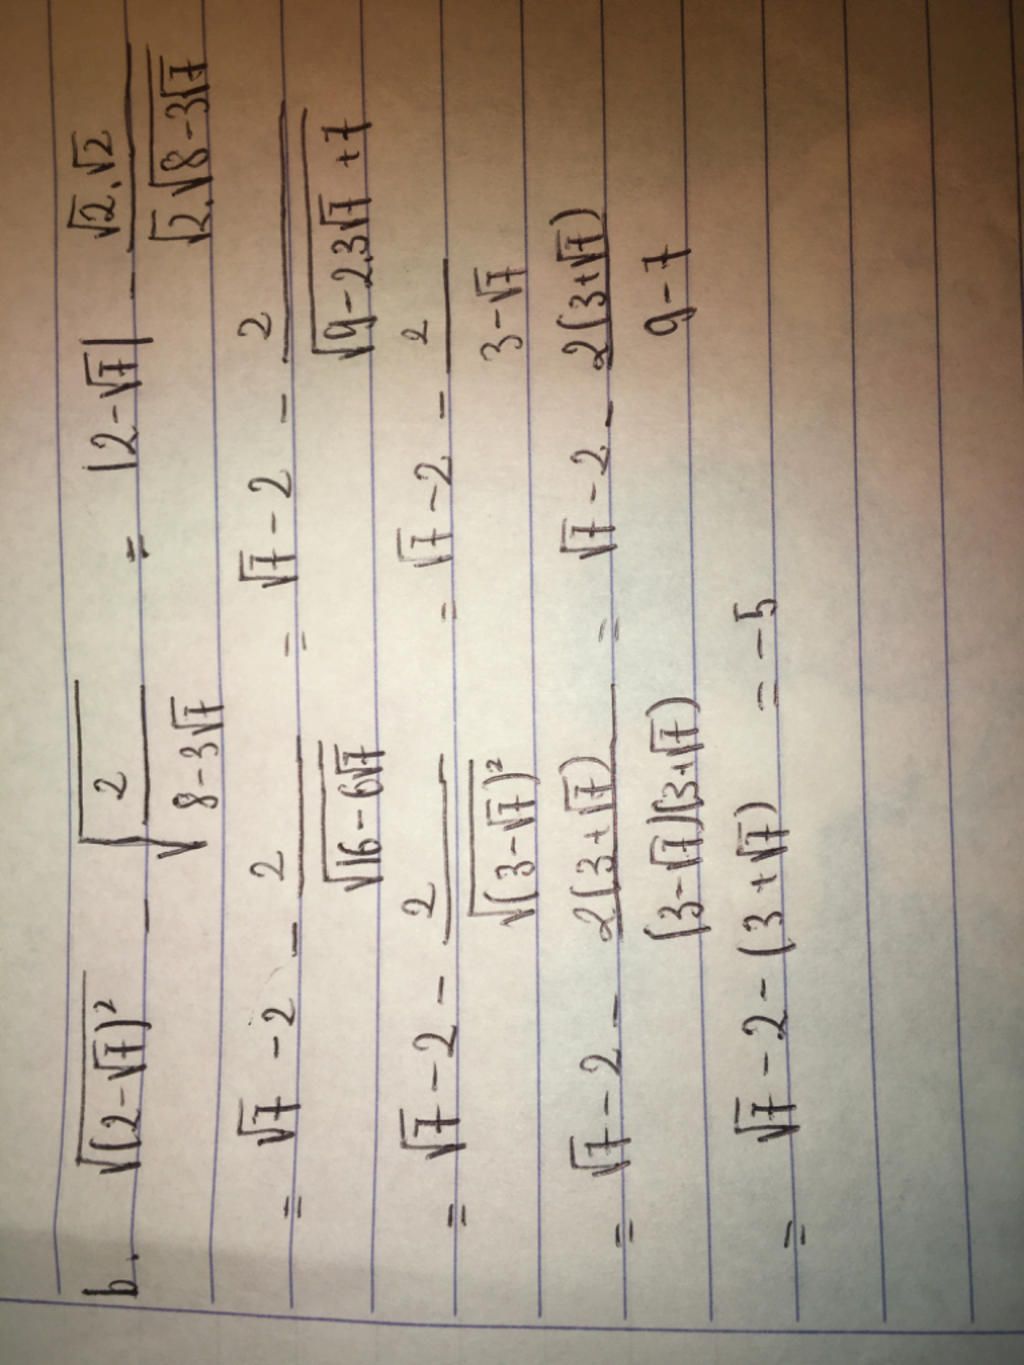 b. √(2-√7)² - √(2/(8-3√7)) = |2-√7| - (√2.√2)/(√2.√(8-3√7))
= √7 - 2 - 2/√(16-6√7) = √7 - 2 - 2/√(9-2.3√7+7)
= √7 - 2 - 2/√(3-√7)² = √7 - 2 - 2/(3-√7)
= √7 - 2 - 2(3+√7)/((3-√7)(3+√7)) = √7 - 2 - 2(3+√7)/(9-7)
= √7 - 2 - (3+√7) = -5